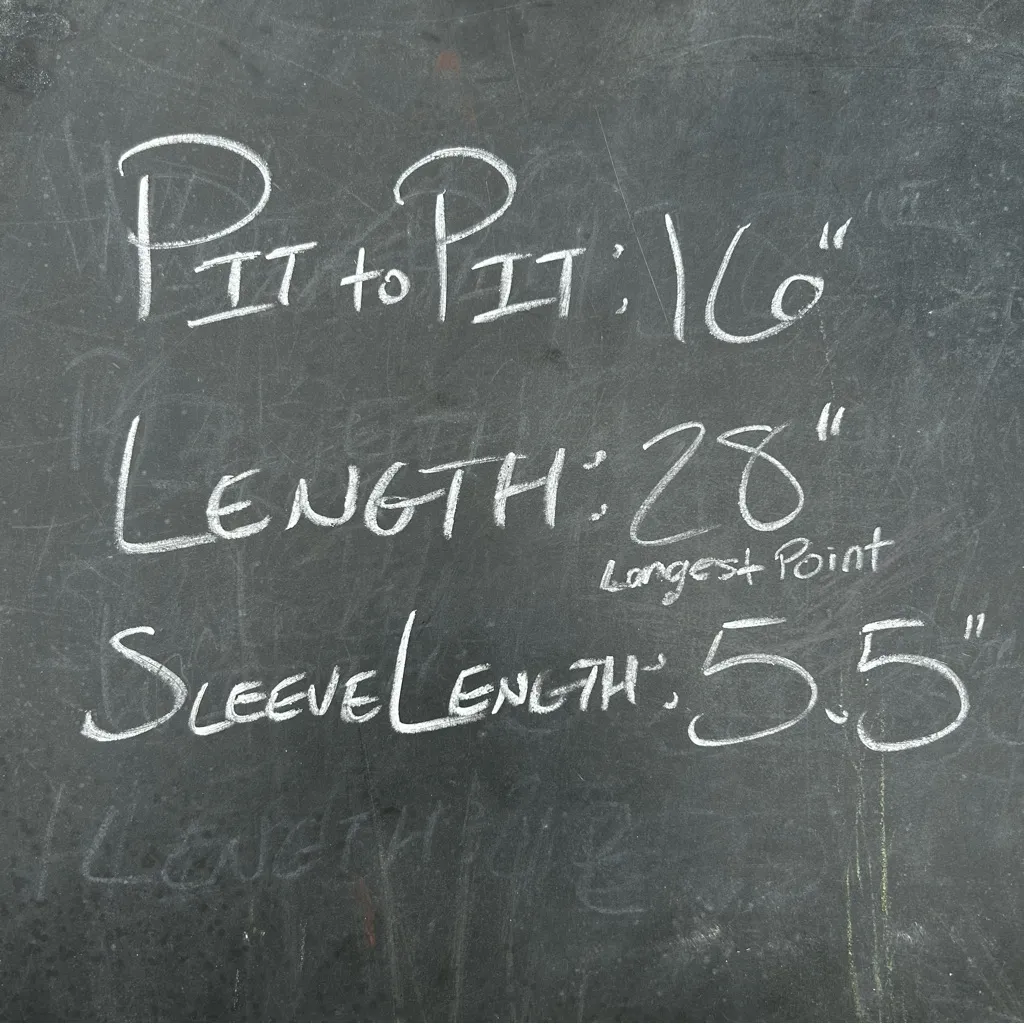 Pit to Pit: 16"
Length: 28"
Longest Point
Sleeve Length: 5.5"